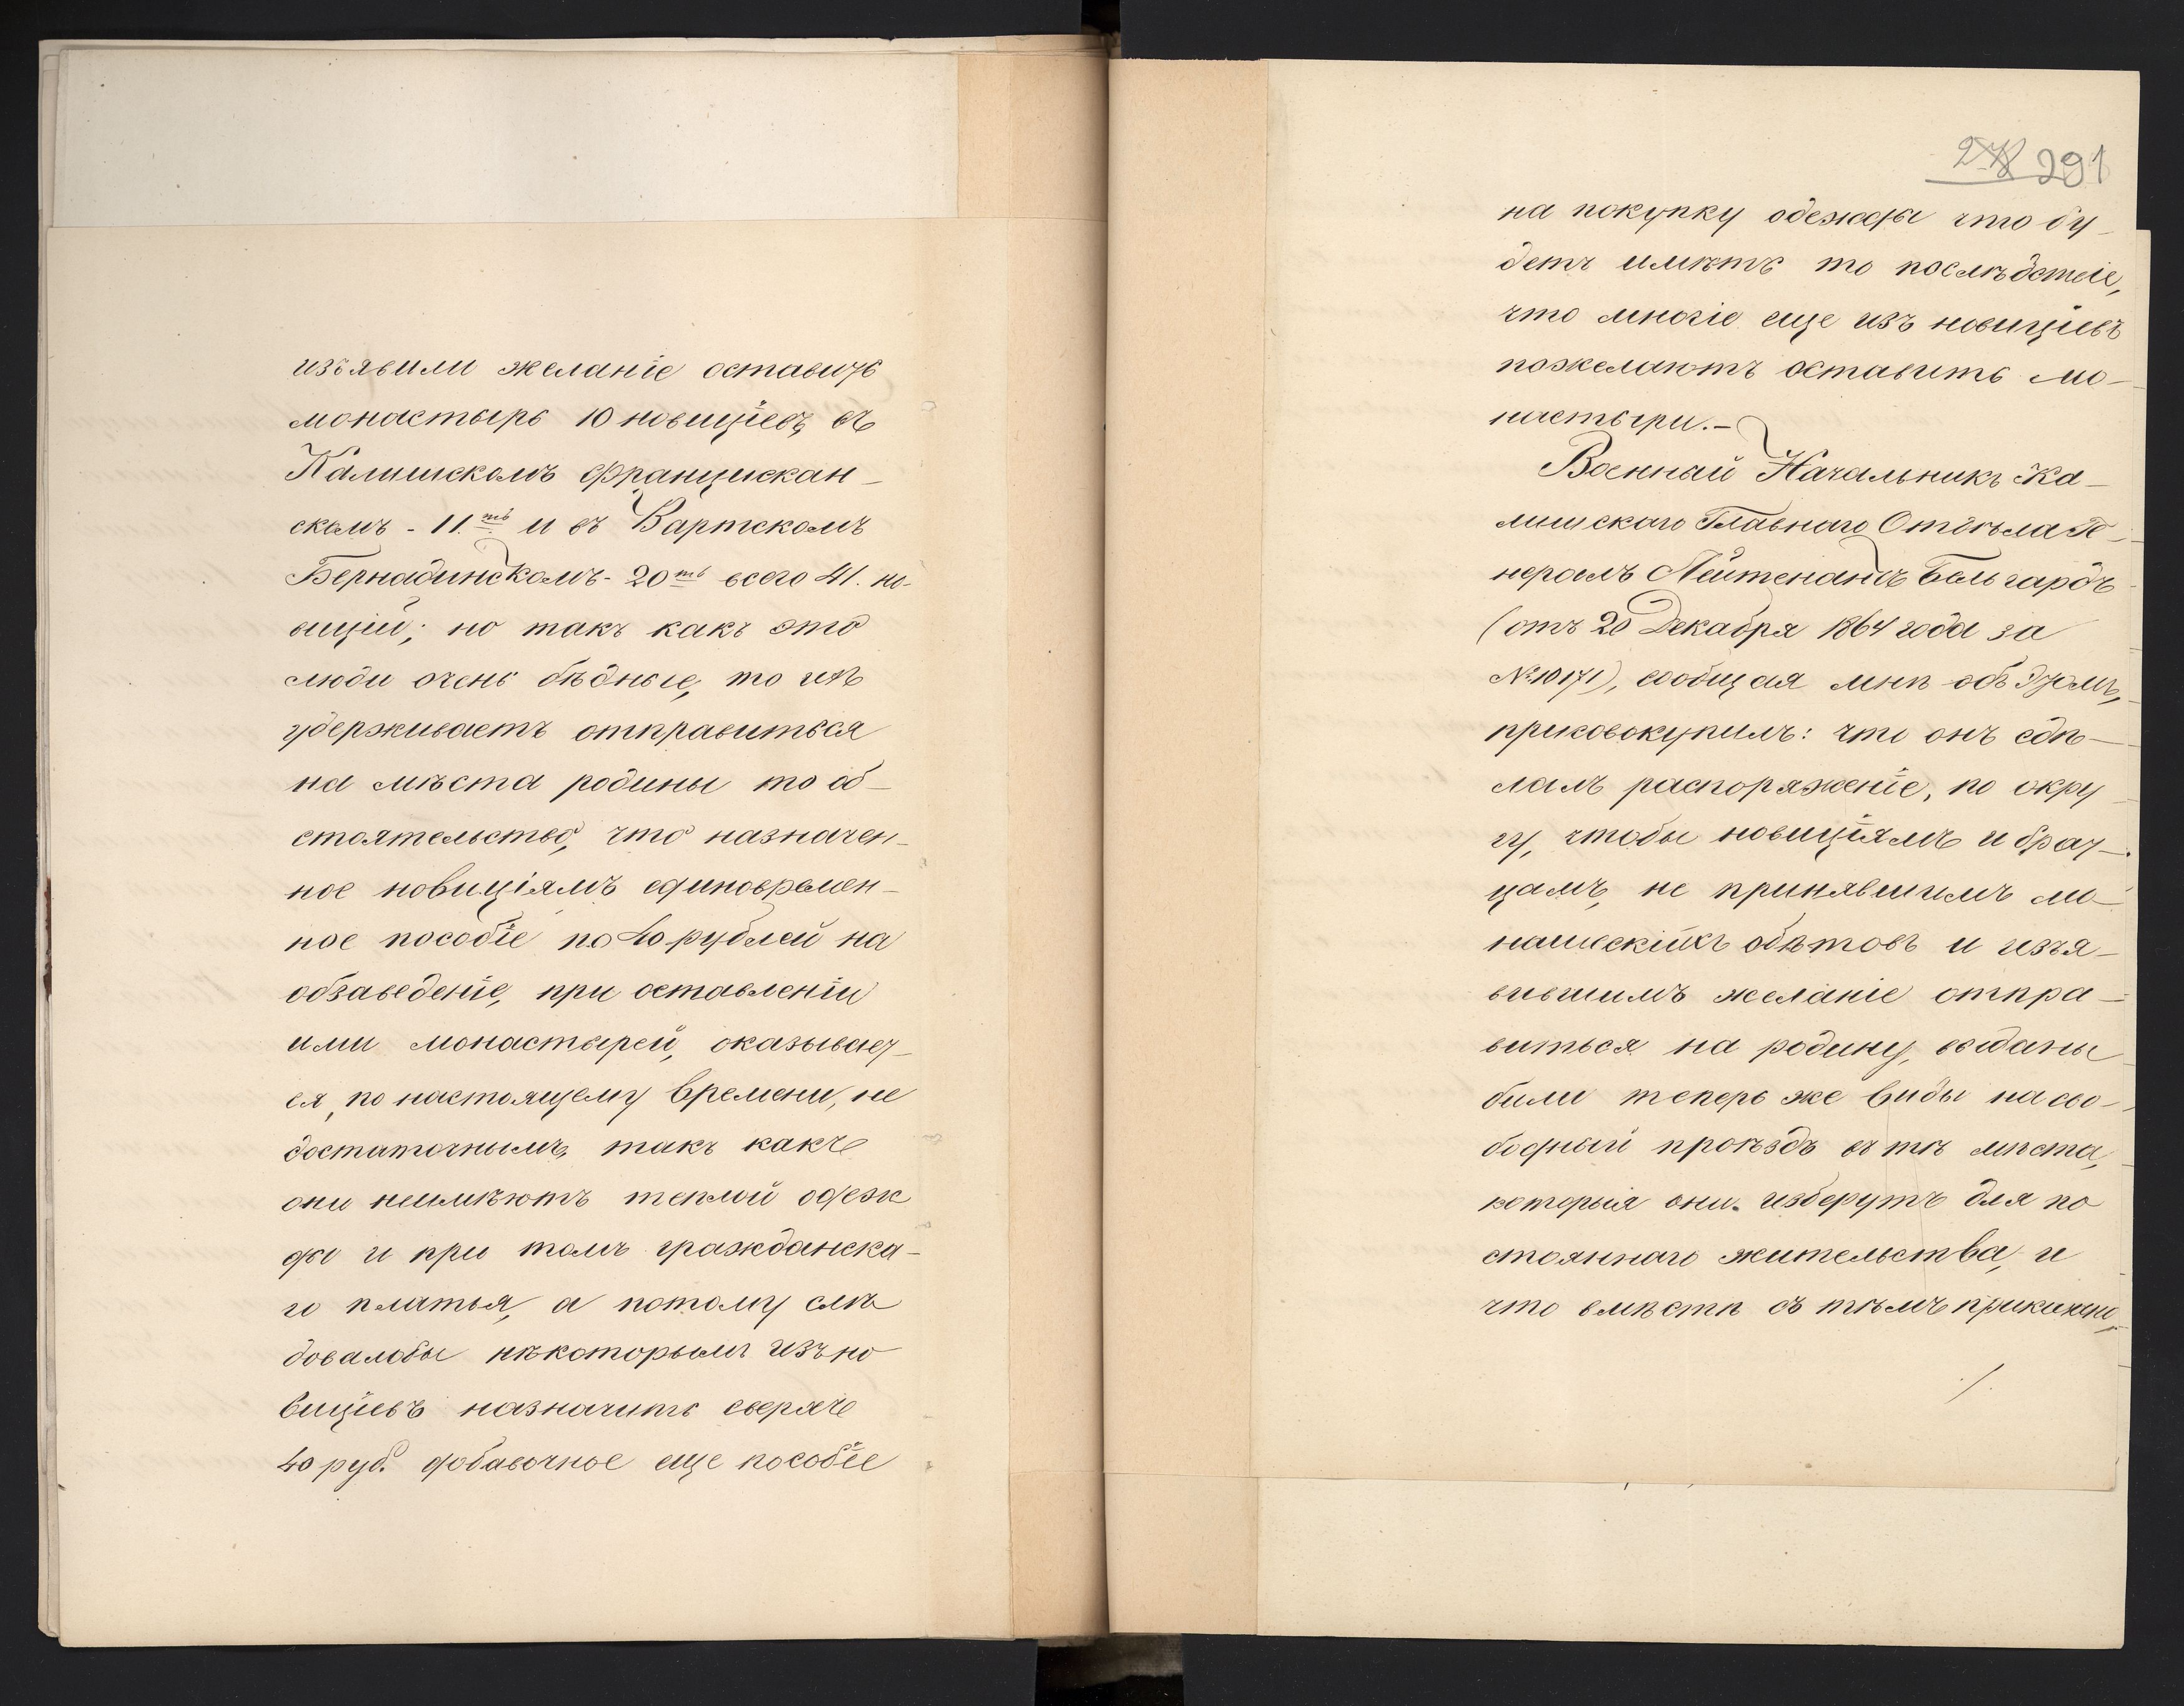 изъявили желаніе оставить
монастырь 10 новиціевъ, въ
Калишскомъ Францискан-
скомъ - 11.ть и въ Вартскомъ
Бернадинскомъ - 20ть всего 41. но-
виціи; но такъ какъ это
люди очень бѣдные, то ихъ
удерживаетъ отправиться
на мѣста родины то об-
стоятельство, что назначен-
ное новиціямъ единовремен-
ное пособіе по 40 рублей на
обзаведеніе, при оставленіи
ими монастырей, оказывает-
ся, по настоящему времени, не
достаточнымъ, такъ какъ
они неимѣютъ теплой одеж
ды и при томъ гражданска-
го платья, а потому слѣ
довалобы нѣкоторымъ изъ но
виціевъ назначить сверхъ
40 руб. добавочное еще пособіе
278 291
на покупку одежды что бу-
детъ имѣть то послѣдствіе,
что многіе еще изъ новиціевъ
пожелаютъ оставить мо-
настыри.-
Военный Начальникъ Ка-
лишскаго Главнаго Отдѣла Ге-
нералъ Лейтенантъ Бельгардъ
(отъ 20 Декабря 1864 года за
№ 10171), сообщая мнѣ объ этомъ,
присовокупилъ: что онъ сдѣ-
лалъ распоряженіе, по окру
гу, чтобы новиціямъ и брат-
цамъ, не принявшимъ мо-
нашескихъ обѣтовъ и изъя-
вившимъ желаніе отпра-
виться на родину, выданы
были теперь же виды на сво-
бодный проѣздъ въ тѣ мѣста,
которыя они изберутъ для по
стояннаго жительства, и
что вмѣстѣ съ тѣмъ
./.